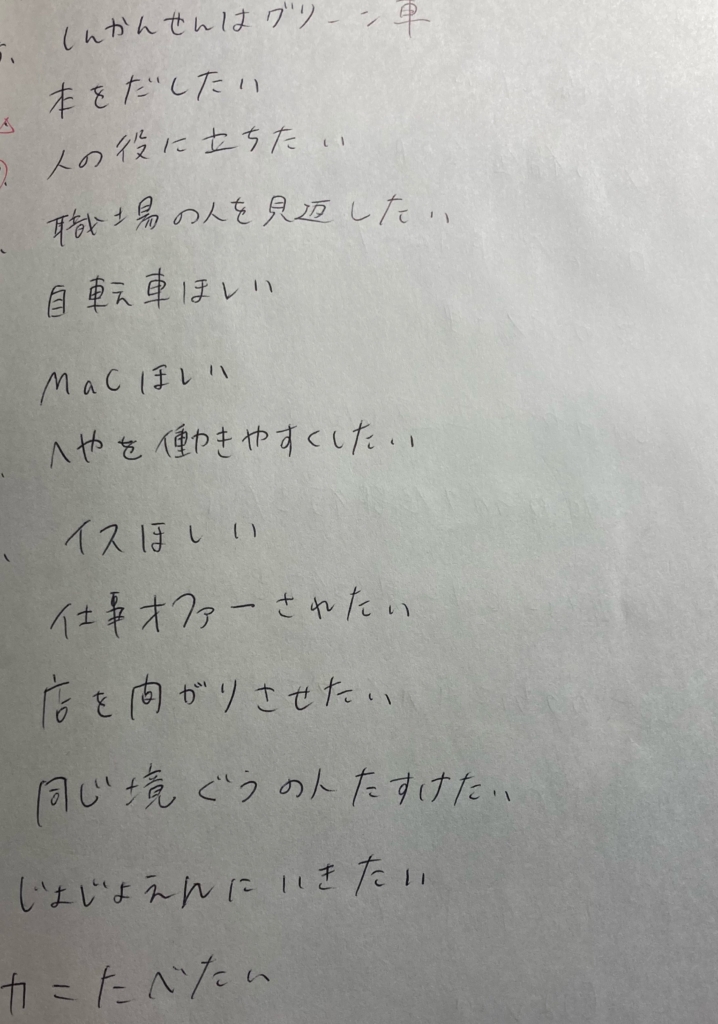 しんかんせんはグリーン車
本をだしたい
人の役に立ちたい
職場の人を見返したい
自転車ほしい
Macほしい
へやを働きやすくしたい
イスほしい
仕事オファーされたい
店を間がりさせたい
同じ境ぐうの人たすけたい
じょじょえんにいきたい
カニたべたい